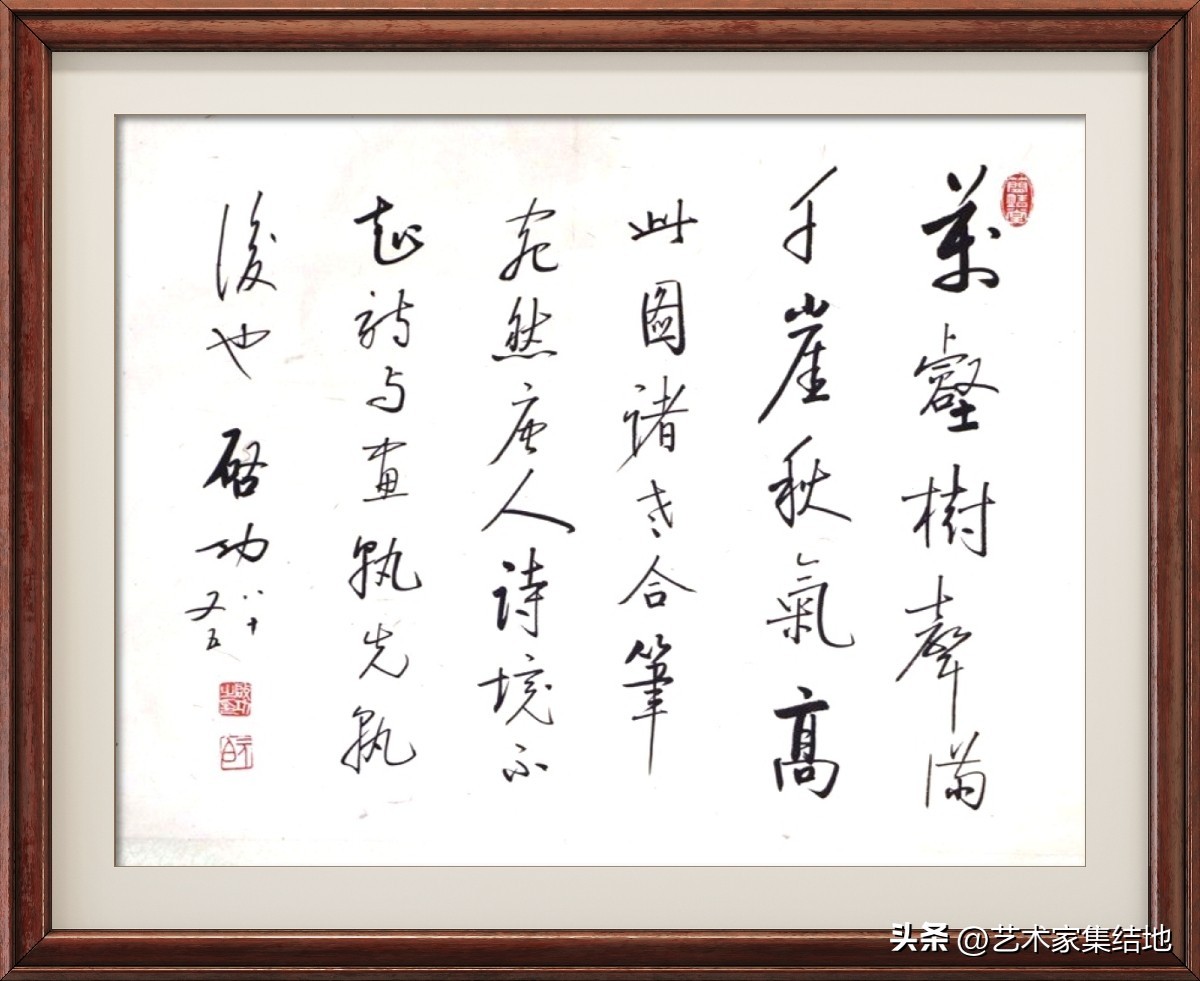 萬壑樹聲滿
千崖秋氣高
此圖諸老合筆
宛然唐人詩境不
知詩與畫孰先孰
後也 啓功
八十
又五
头条 @艺术家集结地